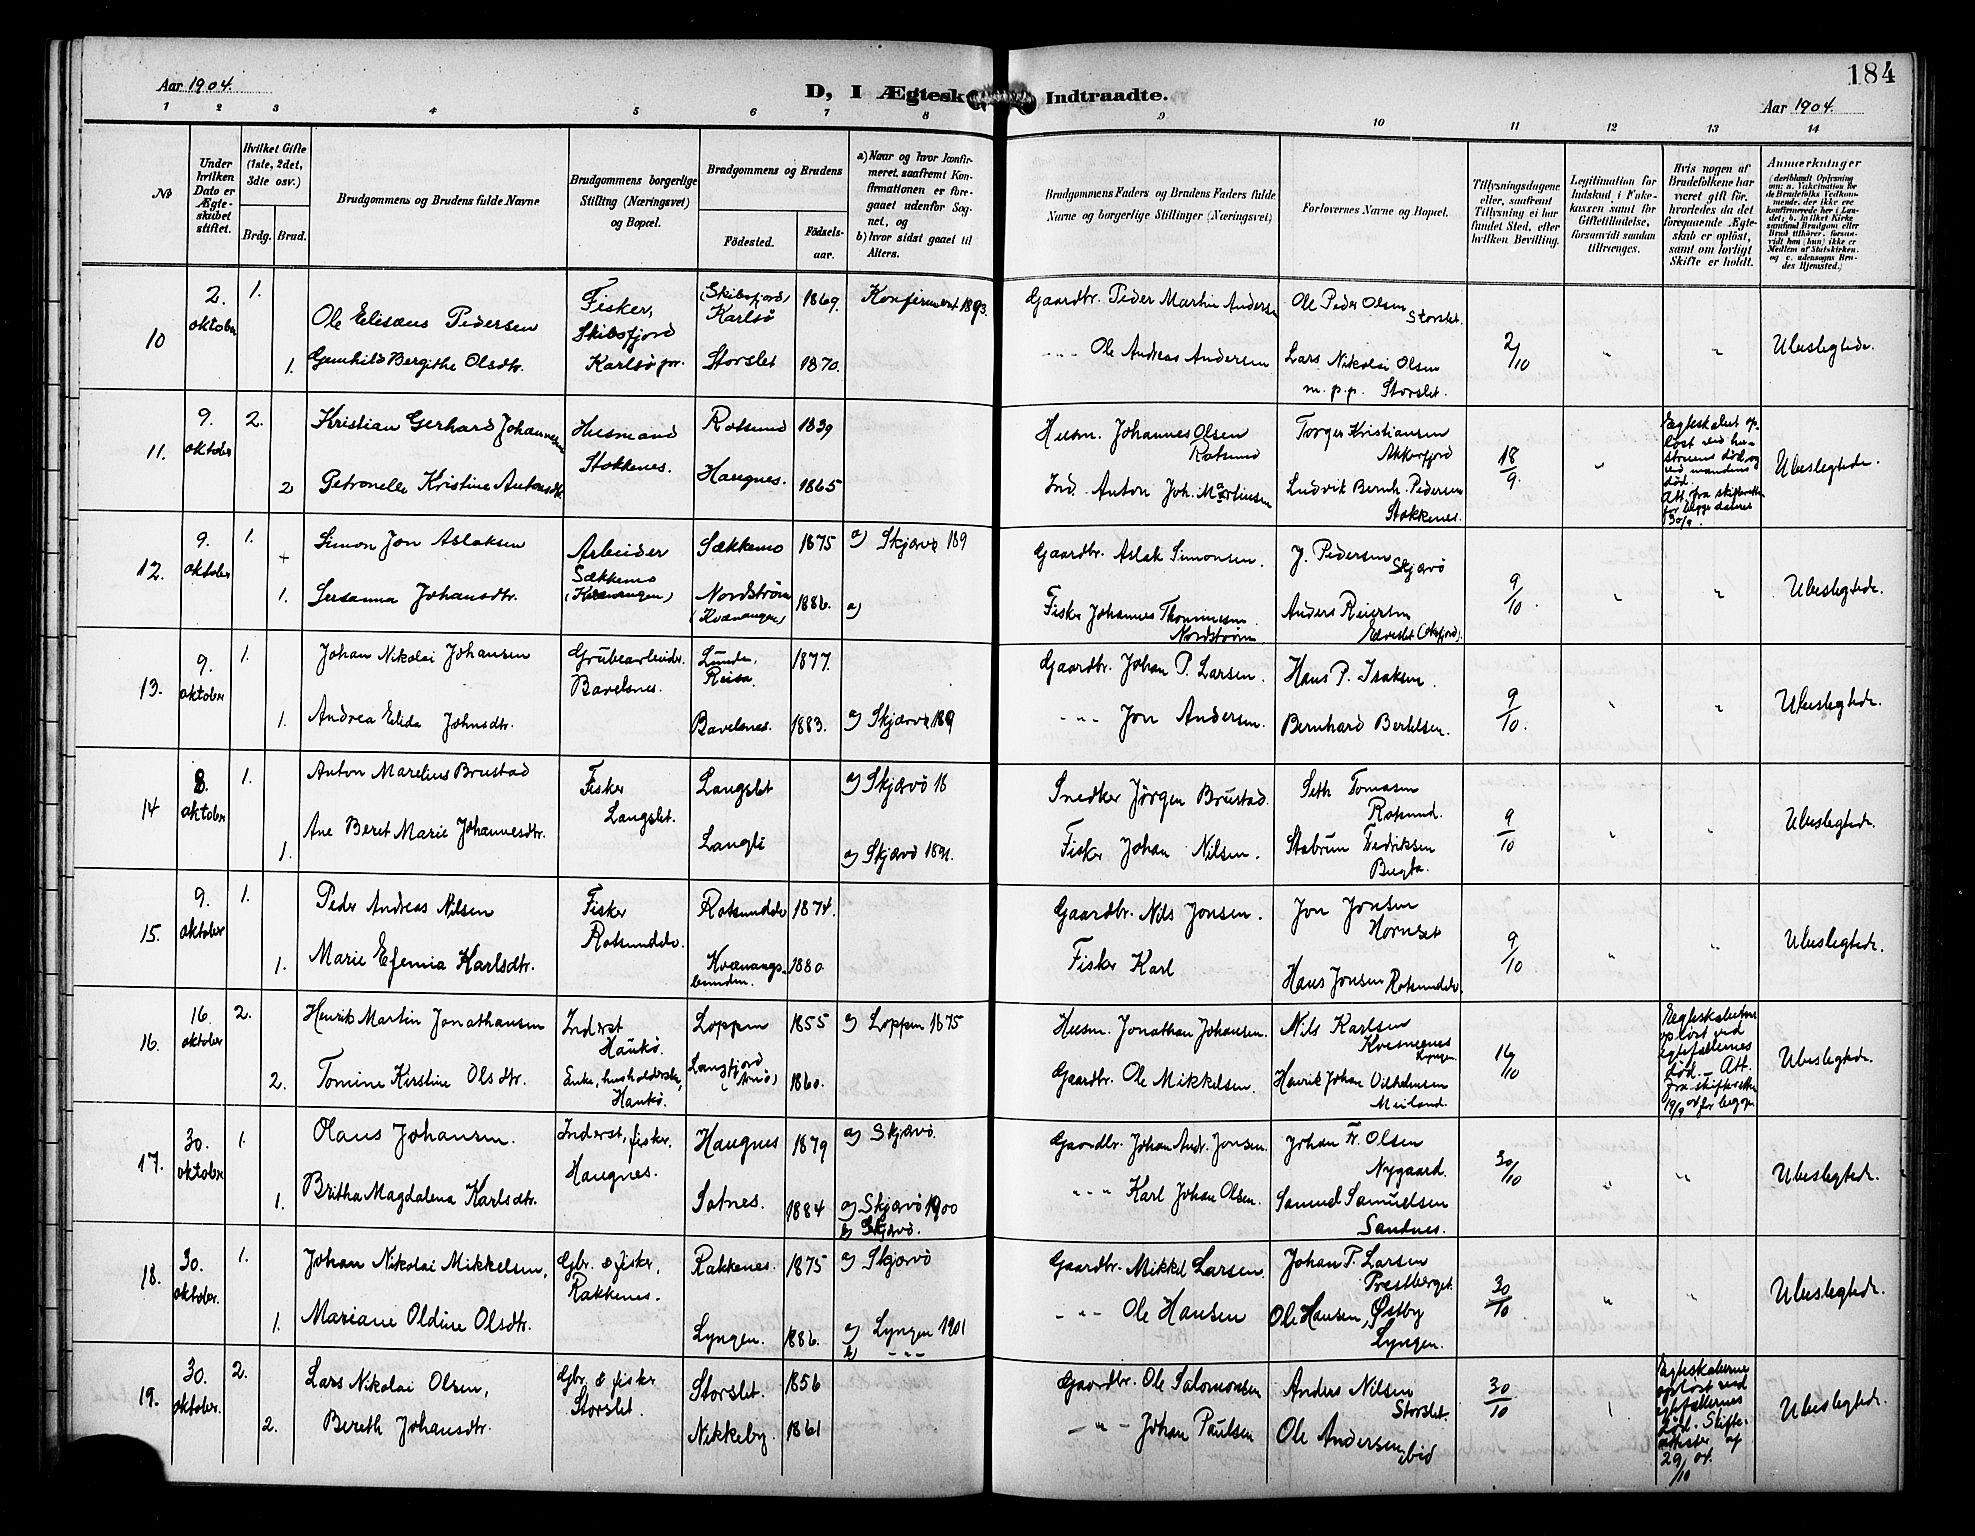 184
Aar 1904.
D, I Ægtesk Indtraadte.
Aar 1904.
1 2 3 4 5 6 7 8 9 10 11 12 13 14
No
Under hvilken Dato er Ægteskabet stiftet.
Hvilket Gifte (1ste, 2det, 3die osv.)
Brdg. Brud.
Brudgommens og Brudens fulde Navne
Brudgommens borgerlige Stilling (Næringsvei) og Bopæl.
Brudgommens og Brudens
Födested. Födsels-aar.
a) Naar og hvor konfirmeret, saafremt Konfirmationen er foregaaet udenfor Sognet, og
b) hvor sidst gaaet til Alters.
Brudgommens Faders og Brudens Faders fulde Navne og borgerlige Stillinger (Næringsvei)
Forlovernes Navne og Bopæl.
Tillysningsdagene eller, saafremt Tillysning ei har fundet Sted, efter hvilken Bevilling.
Legitimation for Indskud i Enkekassen samt for Giftetilladelse, forsaavidt saadan tiltrænges.
Hvis nogen af Brudefolkene har været gift för, hvorledes da det foregaaende Ægteskab er oplöst, samt om lovligt Skifte er holdt.
Anmærkninger
10
2. oktober
1.
Ole Eliseus Pedersen
Fisker, Skibsfjord Karlsö pr.
(Skibsfjord) Karlsö
1869.
Konfirmert 1893.
Gaardbr. Peder Martin Anders
Ole Peder Olsen Storslet.
2/10
Ubeslegtede.
1.
Gunhild Bergithe Olsdtr.
Storslet
1870.
Ole Andreas Andersen
Lars Nikolai Olsen m. p. p. Storslet.
11.
9. oktober
2.
Kristian Gerhard Johannesen
Husmand Stokkenes.
Rotsund
1839
Husm. Johannes Olsen Rotsund
Torger Kristiansen Akkarfjord
18/9.
Ægteskabet opløst ved hustruens død og ved mandens død. Att. fra skifteretten for begge dateret 30/9.
Ubeslegtede.
2
Petronelle Kristine Antonsdtr
Haugnes.
1865
Ind. Anton Joh. Martinsen
Ludvik Bernh. Pedersen Stokkenes.
12.
9. oktober
1.
Simon Jon Aslaksen
Arbeider Sækkemo (Kvænangen)
Sækkemo
1875
a) Skjærvø 189
Gaardbr. Aslak Simonsen.
J. Pedersen Skjærvö
9/10
Ubeslegtede.
1.
Susanna Johansdtr.
Nordstrøm (Kvænangen)
1886.
a)
Fisker Johannes Thommesen Nordstrøm
Anders Reiersen
13.
9. oktober
1.
Johan Nikolai Johansen
Grubearbeider. Bavelsnes.
Lunde, Reisa.
1877.
Gaardbr. Johan P. Larsen.
Hans P. Isaksen.
9/10.
Ubeslegtede.
1.
Andrea Elida Johnsdtr.
Bavelsnes.
1883.
a) Skjærvö 189
Jon Andersen.
Bernhard Bertelsen.
14
8. oktober
1.
Anton Marelius Brustad
Fisker Langslet.
Langslet
a) Skjærvö 18
Snedker Jörgen Brustad.
Seth Tomasen Rotsund.
9/10
Ubeslegtede.
1.
Ane Beret Marie Johannesdtr.
Langli
a) Skjærvö 1891.
Fisker Johan Nilsen.
Fredriksen Bugta.
15.
9. oktober
1.
Peder Andreas Nilsen
Fisker Rotsundelv.
Rotsundelv
1874.
Gaardbr. Nils Jonsen.
Jon Jonsen Hornset
9/10
Ubeslegtede.
1.
Marie Efemia Karlsdtr.
Kvænangsbunden.
1880.
Fisker Karl
Hans Jonsen Rotsundelv.
16.
16. oktober
2.
Henrik Martin Jonathansen
Inderst Haukö.
Loppen
1855
a) Loppen 1875
Husm. Jonathan Johansen.
Nils Karlsen Kvesmenes Lyngen.
16/10
Ægteskaberne opløst ved egtefællernes død. – Att. fra skifteretten 19/9 04 for begge
Ubeslegtede.
2.
Tomine Kirstine Olsdtr.
Enke, husholderske, Haukö.
Langfjord (Arnö)
1860.
Gaardbr. Ole Mikkelsen.
Henrik Johan Vilhelmsen Meiland.
17.
30. oktober
1.
Olaus Johansen.
Inderst, fisker, Haugnes.
Haugnes
1879
a) Skjærvö.
Gaardbr. Johan Andr. Jonsen.
Johan Fr. Olsen Nygaard.
30/10
Ubeslegtede.
1.
Britha Magdalena Karlsdtr.
Sotnes.
1884
a) Skjærvö 1900
b) Skjærvö.
Karl Johan Olsen.
Samuel Samuelsen Sandnes.
18.
30. oktober.
1.
Johan Nikolai Mikkelsen,
Gbr. & fisker, Rakkenes.
Rakkenes.
1875
a) Skjærvö
Gaardbr. Mikkel Larsen.
Johan P. Larsen Prestberget.
30/10
Ubeslegtede.
1.
Mariane Oldine Olsdtr.
Lyngen.
1886.
a) Lyngen 1901
b) - „ -
Ole Hansen
Ole Hansen, Østby Lyngen.
19.
30. oktober.
2.
Lars Nikolai Olsen,
Gbr. & fisker Storslet.
Storslet.
1856
Gaardbr. Ole Salomonsen
Anders Nilsen Storslet.
30/10
Ægteskaberne opløst ved egtefællernes død. Skifteattester af 29/10 04.
Ubeslegtede.
2.
Bereth Johansdtr.
Nikkeby.
1861
Johan Paulsen
Ole Andersen, ibid